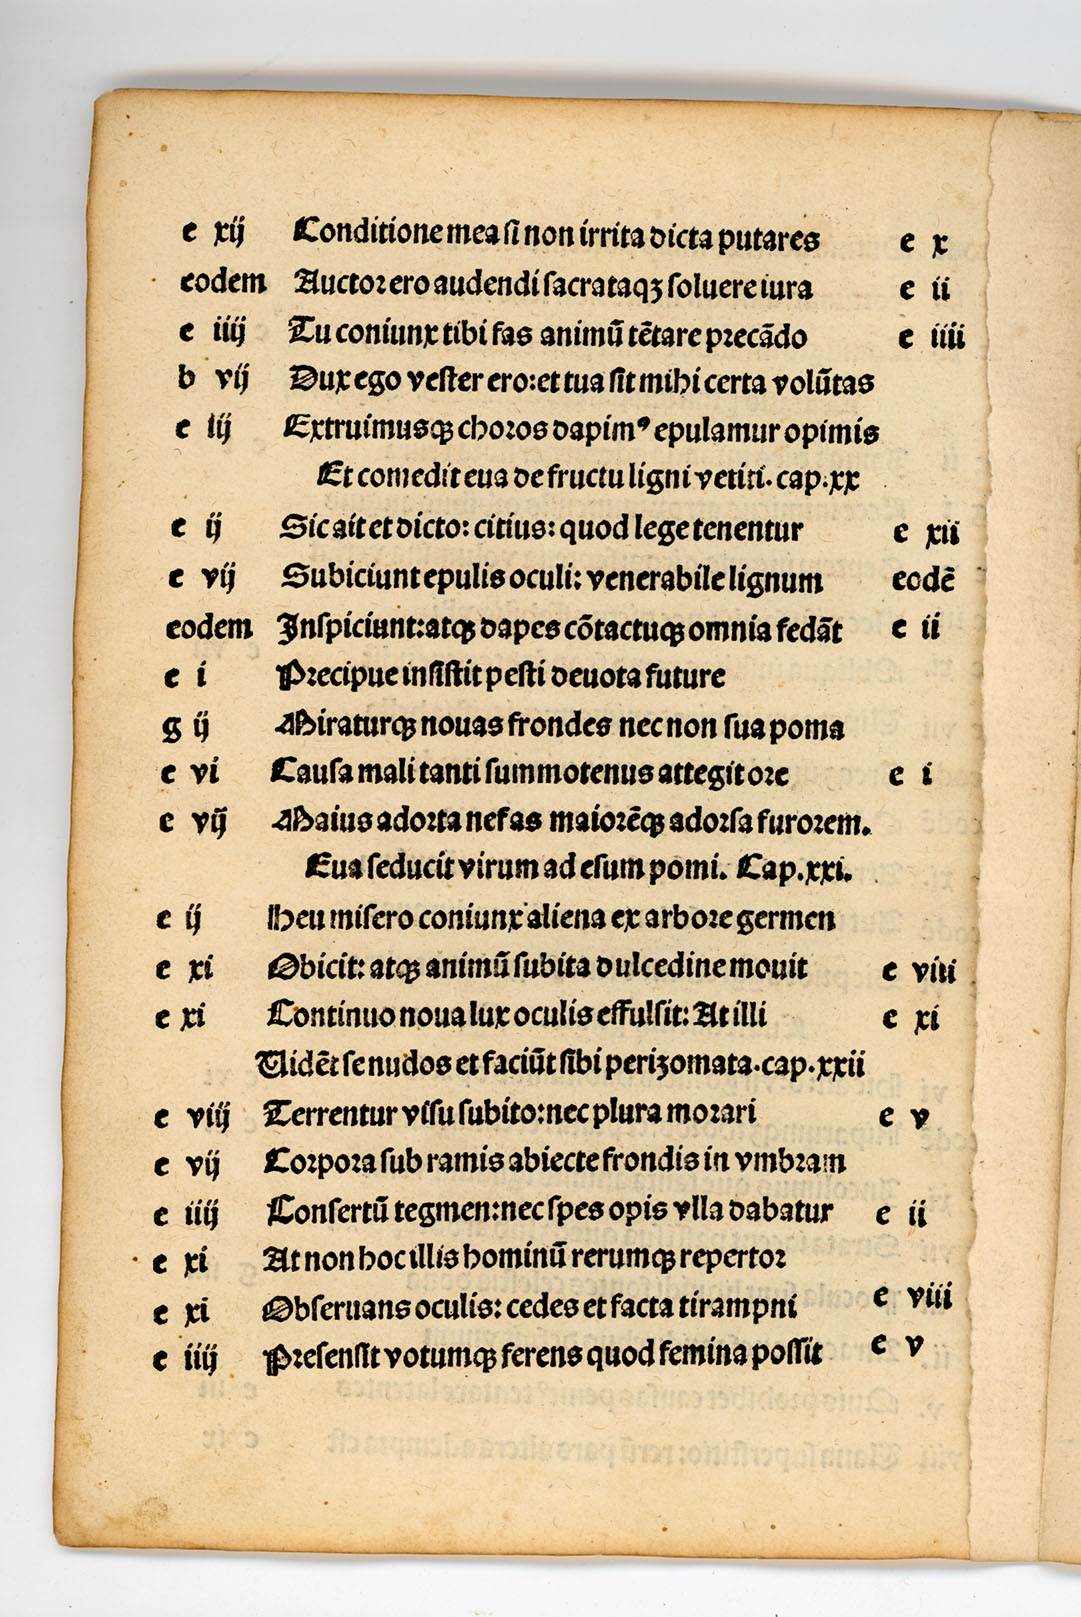 e xij Conditione mea si non irrita dicta putares e x
eodem Auctor ero audendi sacrataqꝫ soluere iura e ii
e iiij Tu coniunx tibi fas animū tētare precādo e iiii
b vij Dux ego vester ero: et tua sit mihi certa volūtas
e iij Extruimusqꝫ choros dapimꝰ epulamur opimis
Et comedit eua de fructu ligni vetiti. cap.xx
e ij Sic ait et dicto: citius: quod lege tenentur e xii
e vij Subiciunt epulis oculi: venerabile lignum eodē
eodem Inspiciunt: atqꝫ dapes cōtactuqꝫ omnia fedāt e ii
e i Precipue insistit pesti deuota future
g ij Miraturqꝫ nouas frondes nec non sua poma
e vi Causa mali tanti summotenus attegit ore e i
e vij Maius adorta nefas maiorēqꝫ adorsa furorem.
Eua seducit virum ad esum pomi. Cap.xxi.
e ij Heu misero coniunx aliena ex arbore germen
e xi Obicit: atqꝫ animū subita dulcedine mouit e viii
e xi Continuo noua lux oculis effulsit: At illi e xi
Uidēt se nudos et faciūt sibi perizomata. cap.xxii
e viij Terrentur visu subito: nec plura morari e v
e vij Corpora sub ramis abiecte frondis in vmbram
e iiij Consertū tegmen: nec spes opis vlla dabatur e ii
e xi At non hoc illis hominū rerumqꝫ repertor
e xi Obseruans oculis: cedes et facta tirampni e viii
e iiij Presensit votumqꝫ ferens quod femina possit e v